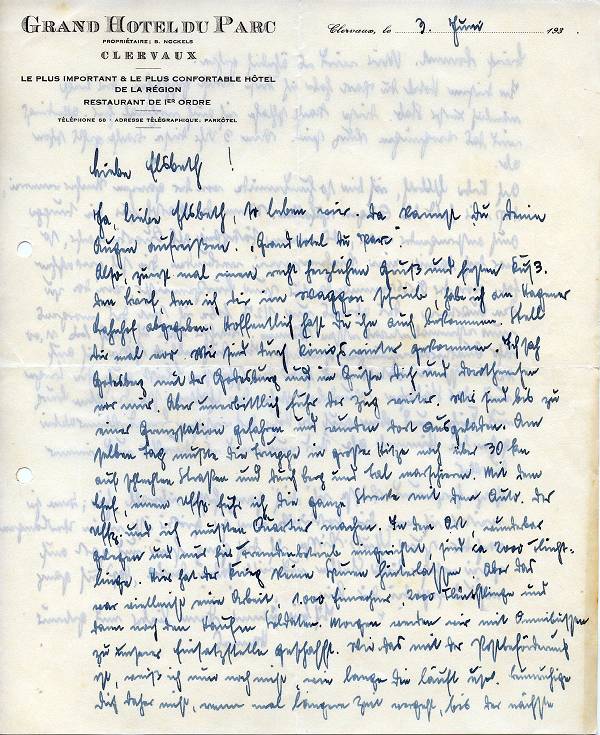 GRAND HOTEL DU PARC
PROPRIÉTAIRE: B. NOCKELS
CLERVAUX
LE PLUS IMPORTANT & LE PLUS CONFORTABLE HÔTEL
DE LA RÉGION
RESTAURANT DE 1ER ORDRE
TÉLÉPHONE 68 - ADRESSE TÉLÉGRAPHIQUE: PARKÔTEL
Clervaux, le 3. Juni 193 .
Liebe Elsbeth!
Ja, liebe Elsbeth, so leben wir. Da kannst Du Deine
Augen aufreißen. „Grand Hotel Du Parc".
Also, zuerst mal einen recht herzlichen Gruß und festen Kuß.
Den Brief, den ich dir im Waggon schrieb, habe ich am Hagener
Bahnhof abgegeben. Hoffentlich hast Du ihn auch bekommen. Stell
Dir mal vor. Wir sind durch Königswinter gekommen. Ich sah
Godesberg mit der Godesburg und im Geiste Dich und Dorotheen
vor mir. Aber unerbittlich fuhr der Zug weiter. Wir sind bis zu
einer Grenzstation gefahren und wurden dort ausgeladen. Am
selben Tag mußte die Truppe in großer Hitze noch über 30 km
auf schlechten Straßen und durch Berg und Tal marschieren. Mit dem
Chef, einem Uffz. fuhr ich die ganze Strecke mit dem Auto. Der
Uffz. und ich mußten Quartier machen. In dem Ort, wunderbar
gelegen und nur für Fremdenbetrieb eingerichtet, sind ca 2000 Flücht-
linge. Hier hat der Krieg keine Spuren hinterlassen. Aber das
war vielleicht eine Arbeit. 1.000 Einwohner, 2000 Flüchtlinge und
dann noch den Haufen Soldaten. Morgen werden wir mit Omnibussen
zu unserer Einsatzstelle geschafft. Wie das mit der Postbeförderung
ist, weiß ich nur noch nicht, wie lange die läuft usw. Beunruhige
Dich daher nicht, wenn mal längere Zeit vergeht, bis der nächste